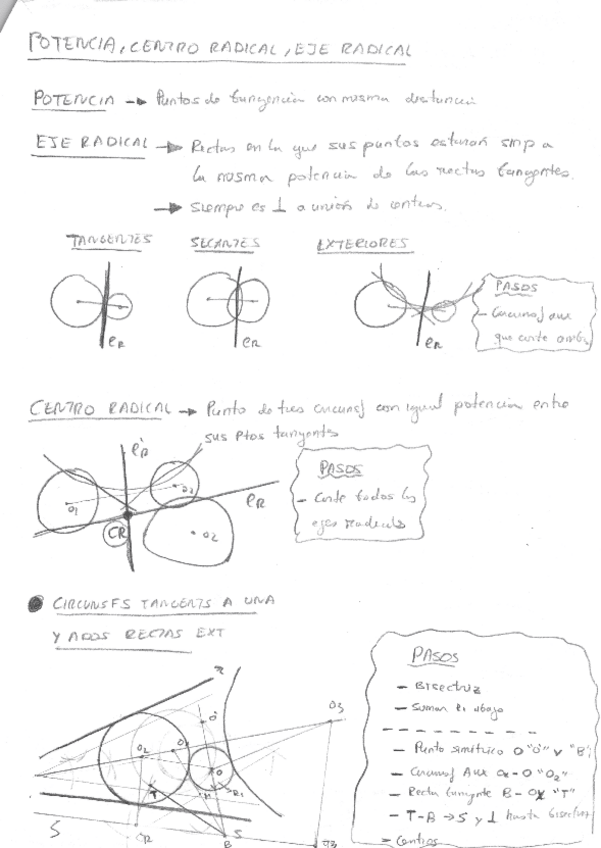 POTENCIA, CENTRO RADICAL, EJE RADICAL
POTENCIA → Puntos de tangencia con misma distancia
EJE RADICAL → Rectas en la que sus puntos estarán smp a
la misma potencia de las rectas tangentes.
→ Siempre es ⊥ a unión de centros.
TANGENTES SECANTES EXTERIORES
PASOS
- Circunsf aux
que corte
eR eR eR
CENTRO RADICAL → Punto de tres circunsf con igual potencia entre
sus ptos tangentes
e'R
PASOS
- Corte todos los
ejes radicals
O1 O2 eR
CR O2
CIRCUNSFS TANGENTS A UNA
Y A DOS RECTAS EXT
PASOS
- Bisectriz
- Sumar
- Punto simétrico O "O'" y "B"
- Circunsf Aux "O2"
- Recta tangente "T"
- T-B → S y ⊥ hasta bisectriz
- Centros
R
O' O3
O2 O
T H
S CR B S